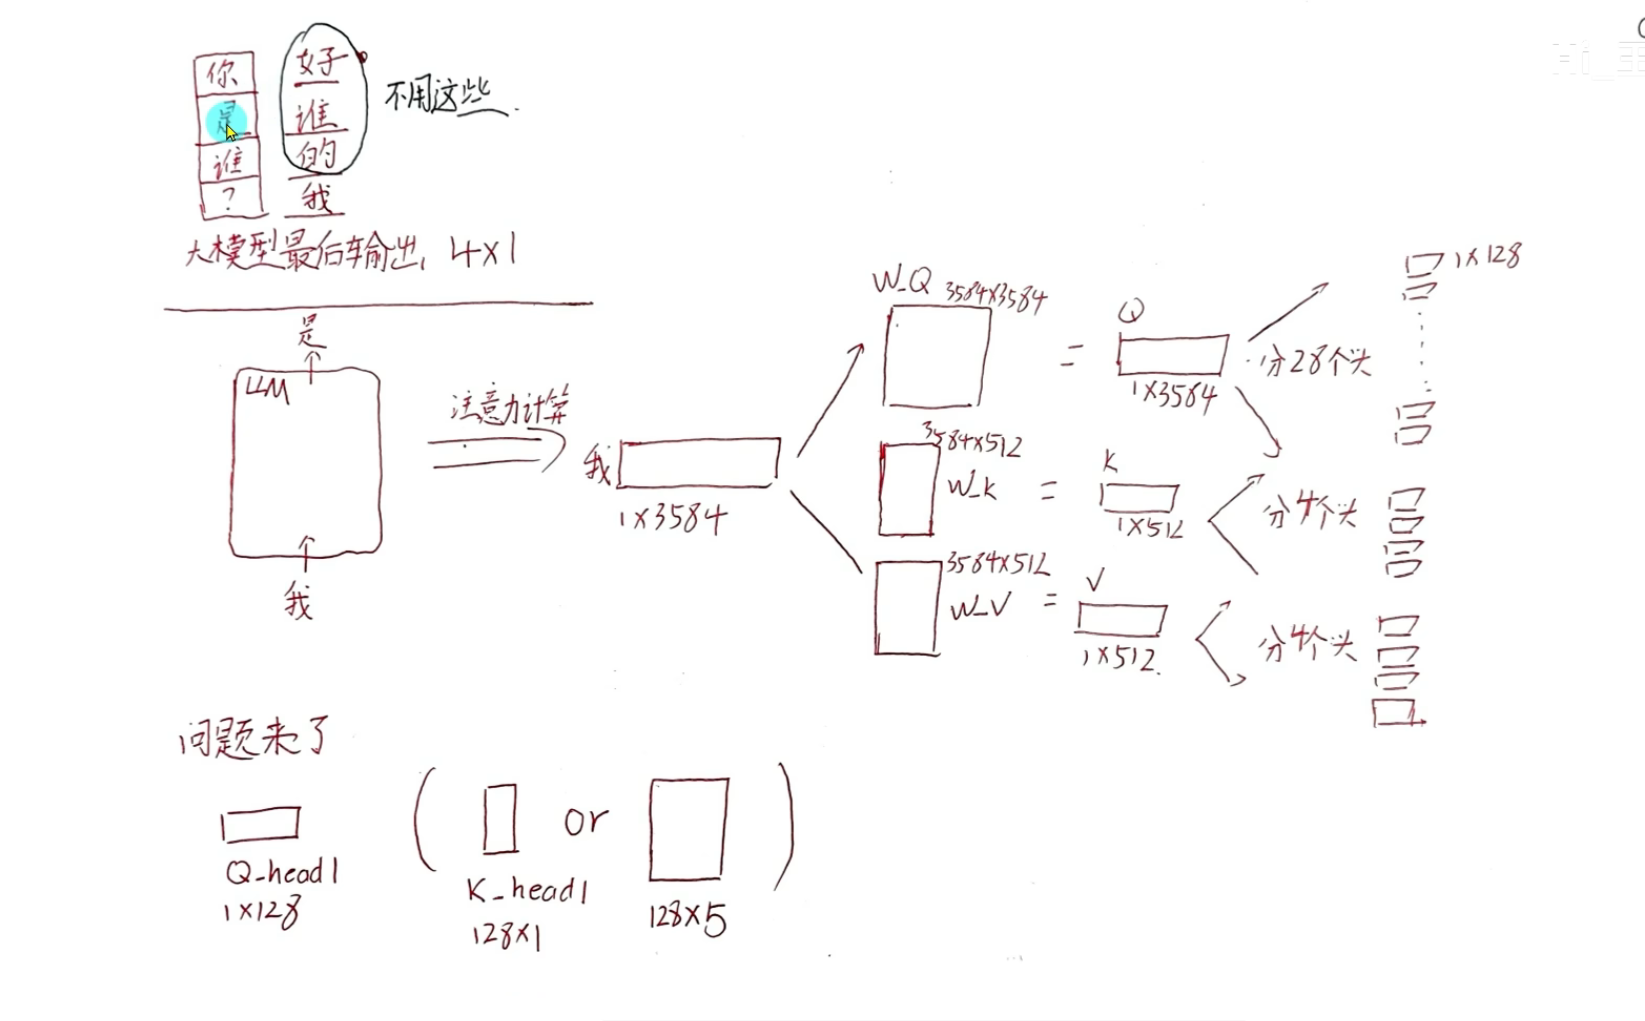 你 好
是 谁
谁 的
? 我
不用这些.
大模型最后输出, 4×1
是
LLM
我
注意力计算
我
1×3584
W_Q 3584×3584
=
Q
1×3584
分28个头
1×128
3584×512
W_K
=
K
1×512
分4个头
3584×512
W_V
=
V
1×512.
分4个头
问题来了
Q_head1
1×128
( or )
K_head1
128×1
128×5